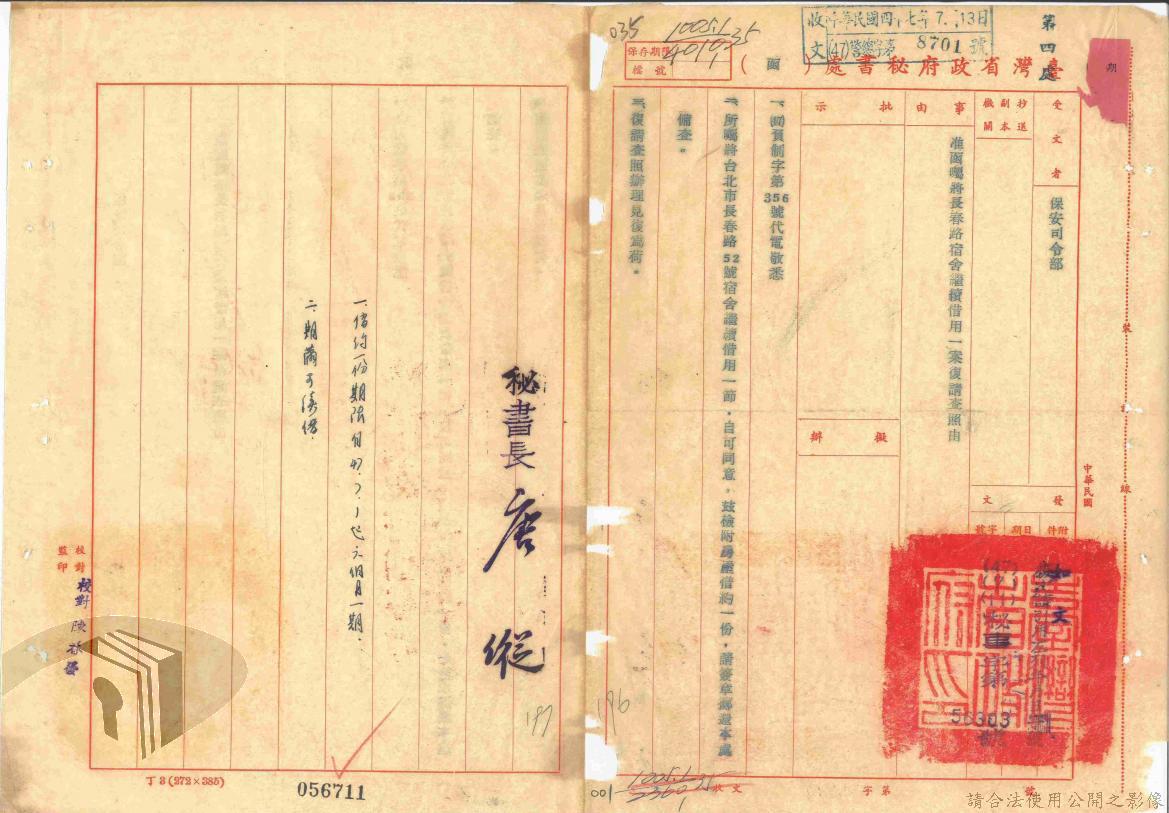 035
1005.1/35
4019
保存期限
檔號
收 中華民國四十七年7.13日
文 (47)警總字第 8701號
第四處
臺灣省政府秘書處(函)
期
受文者
保安司令部
抄送
副本
機關
事由
准函囑將長春路宿舍繼續借用一案復請查照由
批示
擬辦
發文
附件
日期
字號
如文
秘
字第
56303
號
中華民國
裝
訂
線
一、(47)預制字第356號代電敬悉
二、所囑將台北市長春路52號宿舍繼續借用一節,自可同意,玆檢附房屋借約一份,請簽章擲還本處
備查。
三、復請查照辦理見復為荷。
196
001
1005.1/35
收文
字第
號
秘書長 唐縱
一、借約一份期限自47.7.1起六個月一期、
二、期滿可續借.
197
校對
監印
校對 陳
丁3(272×385)
056711
請合法使用公開之影像